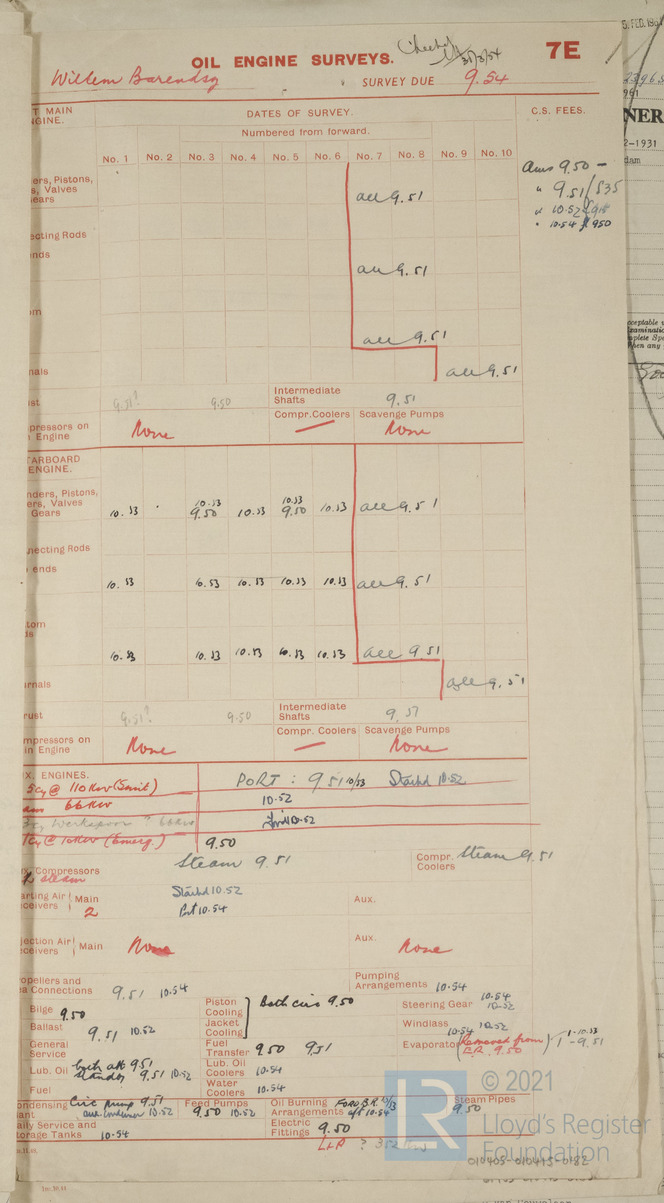 OIL ENGINE SURVEYS.
7E
Willem Barendsz
SURVEY DUE 9.54
T MAIN
GINE.
DATES OF SURVEY.
C.S. FEES.
Numbered from forward.
No. 1 No. 2 No. 3 No. 4 No. 5 No. 6 No. 7 No. 8 No. 9 No. 10
Ams 9.50 -
ers, Pistons,
s, Valves
ears
all 9.51
" 9.51/535
" 10.52
" 10.54 £950
ecting Rods
nds
all 9.51
om
all 9.51
nals
all 9.51
st 9.51? 9.50 Intermediate Shafts 9.51
pressors on
Engine None
Compr. Coolers
Scavenge Pumps None
TARBOARD
ENGINE.
nders, Pistons,
ers, Valves
Gears
10.53 10.53 9.50 10.53 10.53 9.50 10.53 all 9.51
necting Rods
ends
10.53 10.53 10.53 10.53 10.53 all 9.51
tom
ds
10.53 10.53 10.53 10.53 10.53 all 9.51
urnals
all 9.51
rust 9.51? 9.50 Intermediate Shafts 9.51
mpressors on
in Engine None
Compr. Coolers
Scavenge Pumps None
X. ENGINES.
5cy @ 110 KW PORT: 9.51 10/53 Starbd 10.52
66 KW 10.52
10.52
1cy @ 10 KW (Emerg.) 9.50
Compressors
steam
Steam 9.51
Compr. Coolers Steam 9.51
arting Air
ceivers Main
2
Starbd 10.52
Port 10.54
Aux.
ection Air
ceivers Main None
Aux. None
opellers and
a Connections 9.51 10.54
Pumping Arrangements 10.54
Bilge 9.50
Piston Cooling
Both circ 9.50
Steering Gear 10.54 10.52
Ballast 9.51 10.52
Jacket Cooling
Windlass 10.54 10.52
General Service
Fuel Transfer 9.50 9.51
Evaporator (Removed from E.R. 9.50) 1-10.53 1-9.51
Lub. Oil both att 9.51
standby 9.51 10.52
Lub. Oil Coolers 10.54
Fuel
Water Coolers 10.54
ondensing
ant
Circ pump 9.51
aux. condenser 10.52
Feed Pumps
9.50 10.52
Oil Burning Arrangements
Steam Pipes
9.50
aily Service and
torage Tanks 10.54
Electric Fittings 9.50
LR
© 2021
Lloyd's Register
Foundation
010405-010415-0182